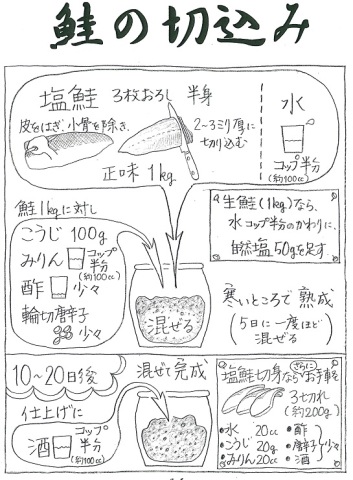 鮭の切込み
塩鮭 3枚おろし 半身
皮をはぎ、小骨を除き、
2～3ミリ厚に
切り込む
正味 1kg
水
コップ半分
(約100cc)
鮭1kgに対し
こうじ 100g
みりん コップ
半分
(約100cc)
酢 少々
輪切唐辛子
少々
混ぜる
生鮭(1kg)なら、
水コップ半分のかわりに、
自然塩50gを足す
寒いところで熟成
(5日に一度ほど
混ぜる)
10～20日後
混ぜて完成
仕上げに
酒 コップ
半分
(約100cc)
塩鮭切身ならさらにお手軽
3切れ
(約200g)
・水 20cc
・こうじ 20g
・みりん 20cc
・酢
・唐辛子
・酒
少々